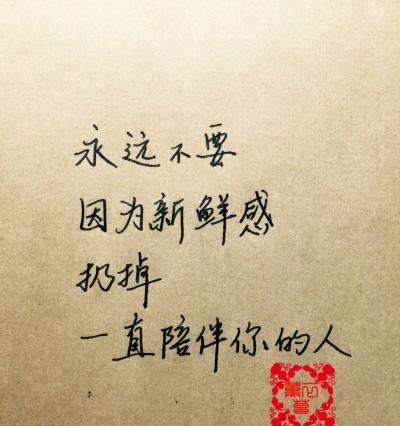 永远不要
因为新鲜感
扔掉
一直陪伴你的人